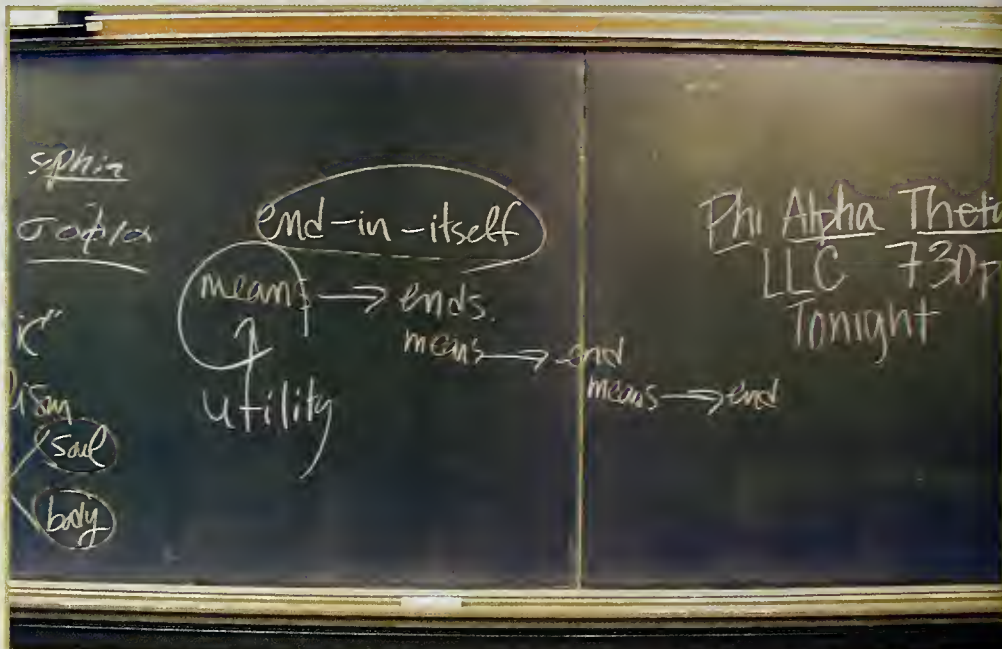 sophia
σοφία
ic"
lism
soul
body
end-in-itself
means → ends.
utility
means → end
means → end
Phi Alpha Theta
LLC 730p
Tonight